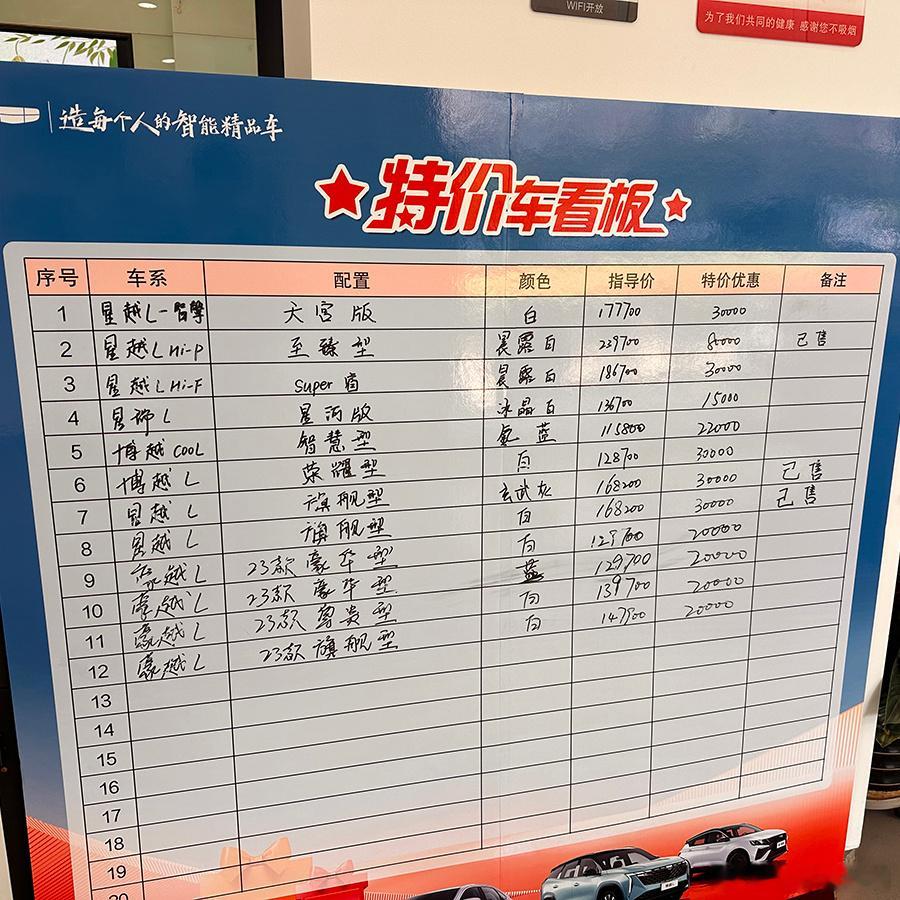 WIFI开放
为了我们共同的健康 感谢您不吸烟
造每个人的智能精品车
特价车看板
序号 车系 配置 颜色 指导价 特价优惠 备注
1 星越L-智擎 天宫版 白 177700 30000
2 星越L Hi-P 至臻型 晨露白 239700 80000 已售
3 星越L Hi-F super雷 晨露白 186700 30000
4 星瑞L 星河版 冰晶白 136700 15000
5 博越COOL 智慧型 氪蓝 115800 22000
6 博越L 荣耀型 白 128700 30000
7 星越L 旗舰型 玄武灰 168200 30000 已售
8 星越L 旗舰型 白 168200 30000 已售
9 豪越L 23款豪华型 白 129700 20000
10 豪越L 23款豪华型 蓝 129700 20000
11 豪越L 23款尊贵型 白 139700 20000
12 豪越L 23款旗舰型 白 147900 20000
13
14
15
16
17
18
19
20